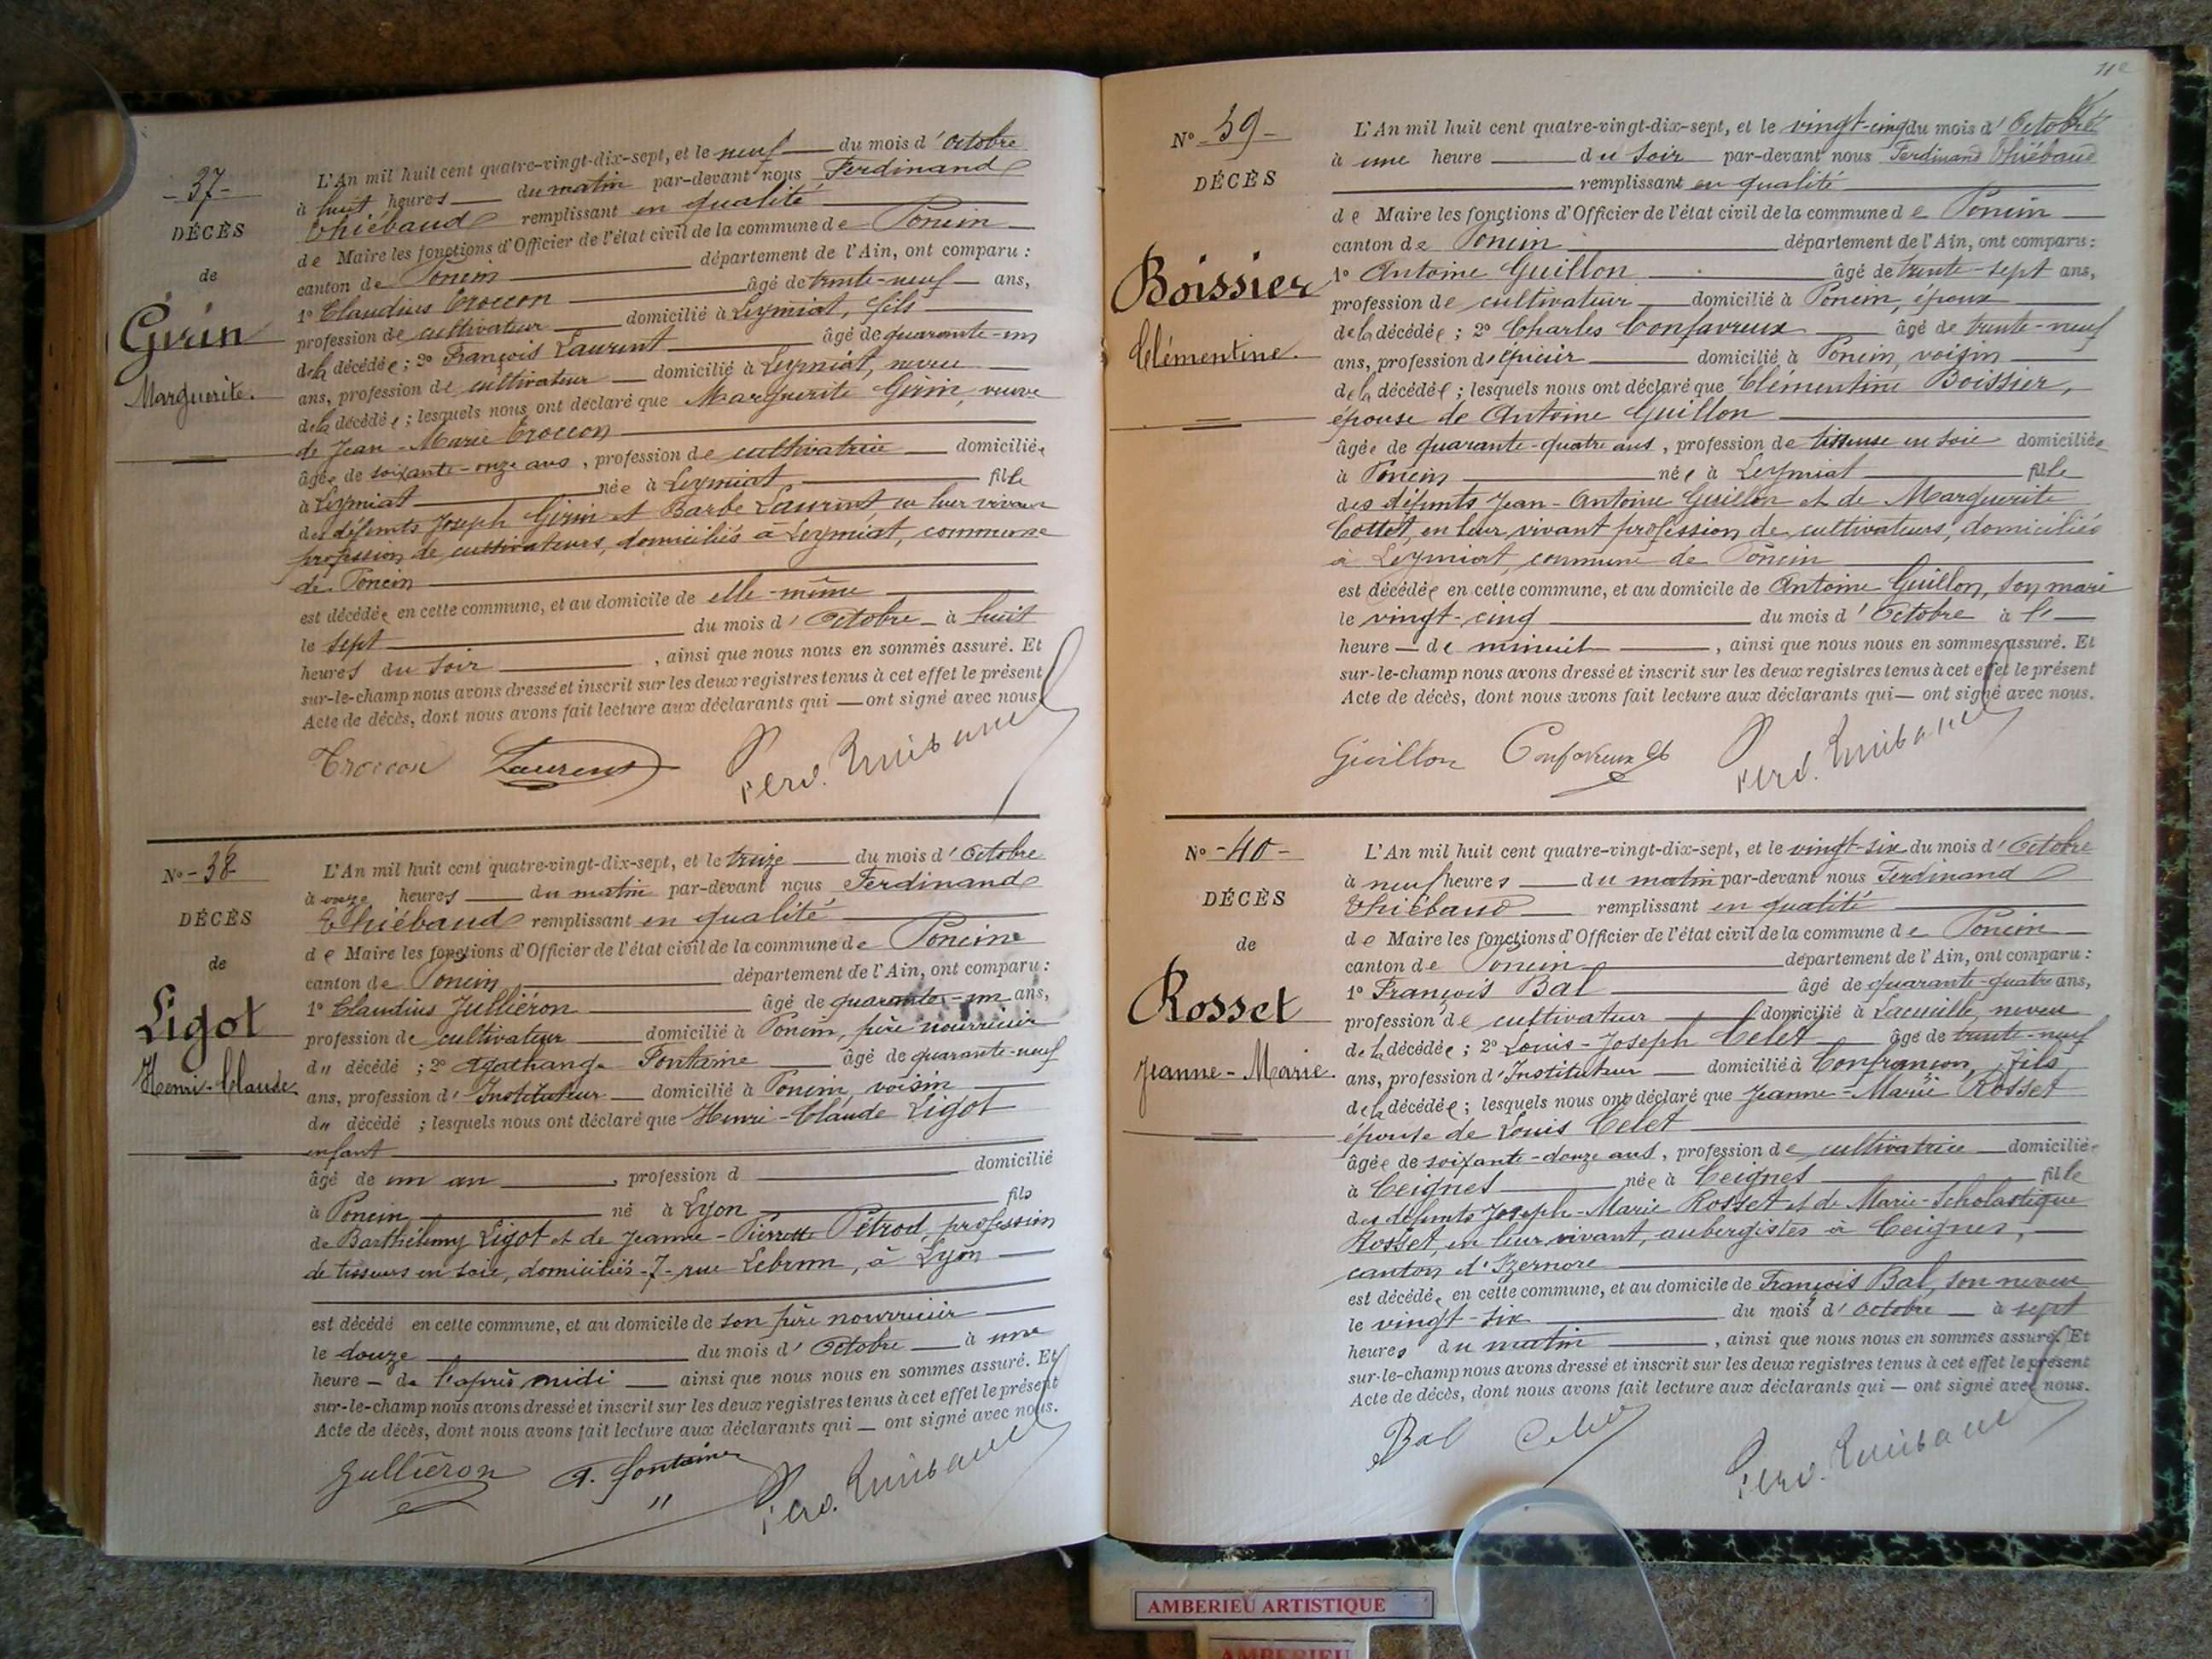 -37-
DÉCÈS
de
Girin
Marguerite.
L'An mil huit cent quatre-vingt-dix-sept, et le neuf du mois d'Octobre
à huit heures du matin par-devant nous Ferdinand
Thiébaud remplissant en qualité
de Maire les fonctions d'Officier de l'état civil de la commune de Poncin
canton de Poncin département de l'Ain, ont comparu :
1° Claudius Troccon âgé de trente-neuf ans,
profession de cultivateur domicilié à Leymiat, fils
de la décédée ; 2° François Laurent âgé de quarante-un
ans, profession de cultivateur domicilié à Leymiat, neveu
de la décédée ; lesquels nous ont déclaré que Marguerite Girin, veuve
de Jean-Marie Troccon
âgée de soixante-onze ans, profession de cultivatrice domiciliée
à Leymiat née à Leymiat fille
des défunts Joseph Girin et Barbe Laurent, en leur vivant
profession de cultivateurs, domiciliés à Leymiat, commune
de Poncin
est décédée en cette commune, et au domicile de elle-même
le sept du mois d'Octobre à huit
heures du soir, ainsi que nous nous en sommes assuré. Et
sur-le-champ nous avons dressé et inscrit sur les deux registres tenus à cet effet le présent
Acte de décès, dont nous avons fait lecture aux déclarants qui ont signé avec nous.
Troccon Laurent Ferd. Thiébaud
N° -38-
DÉCÈS
de
Ligot
Henri-Claude
L'An mil huit cent quatre-vingt-dix-sept, et le treize du mois d'Octobre
à onze heures du matin par-devant nous Ferdinand
Thiébaud remplissant en qualité
de Maire les fonctions d'Officier de l'état civil de la commune de Poncin
canton de Poncin département de l'Ain, ont comparu :
1° Claudius Julliéron âgé de quarante-un ans,
profession de cultivateur domicilié à Poncin, père nourricier
du décédé ; 2° Agathange Fontaine âgé de quarante-neuf
ans, profession d'Instituteur domicilié à Poncin, voisin
du décédé ; lesquels nous ont déclaré que Henri-Claude Ligot
enfant
âgé de un an, profession d domicilié
à Poncin né à Lyon fils
de Barthélemy Ligot et de Jeanne-Pierrette Pétrod, profession
de tisseurs en soie, domiciliés -7- rue Lebrun, à Lyon
est décédé en cette commune, et au domicile de son père nourricier
le douze du mois d'Octobre à une
heure de l'après midi ainsi que nous nous en sommes assuré. Et
sur-le-champ nous avons dressé et inscrit sur les deux registres tenus à cet effet le présent
Acte de décès, dont nous avons fait lecture aux déclarants qui ont signé avec nous.
Julliéron A. Fontaine Ferd. Thiébaud
N° 39-
DÉCÈS
Boissier
Clémentine.
L'An mil huit cent quatre-vingt-dix-sept, et le vingt-cinq du mois d'Octobre
à une heure du soir par-devant nous Ferdinand Thiébaud
remplissant en qualité
de Maire les fonctions d'Officier de l'état civil de la commune de Poncin
canton de Poncin département de l'Ain, ont comparu :
1° Antoine Guillon âgé de trente-sept ans,
profession de cultivateur domicilié à Poncin, époux
de la décédée ; 2° Charles Confavreux âgé de trente-neuf
ans, profession d'épicier domicilié à Poncin, voisin
de la décédée ; lesquels nous ont déclaré que Clémentine Boissier,
épouse de Antoine Guillon
âgée de quarante-quatre ans, profession de tisseuse en soie domiciliée
à Poncin née à Leymiat fille
des défunts Jean-Antoine Guillon et de Marguerite
Cottet, en leur vivant profession de cultivateurs, domiciliés
à Leymiat, commune de Poncin
est décédée en cette commune, et au domicile de Antoine Guillon, son mari
le vingt-cinq du mois d'Octobre à l'
heure de minuit, ainsi que nous nous en sommes assuré. Et
sur-le-champ nous avons dressé et inscrit sur les deux registres tenus à cet effet le présent
Acte de décès, dont nous avons fait lecture aux déclarants qui ont signé avec nous.
Guillon Confavreux Ch Ferd. Thiébaud
N° -40-
DÉCÈS
de
Rosset
Jeanne-Marie.
L'An mil huit cent quatre-vingt-dix-sept, et le vingt-six du mois d'Octobre
à neuf heures du matin par-devant nous Ferdinand
Thiébaud remplissant en qualité
de Maire les fonctions d'Officier de l'état civil de la commune de Poncin
canton de Poncin département de l'Ain, ont comparu :
1° François Bal âgé de quarante-quatre ans,
profession de cultivateur domicilié à Lacueille, neveu
de la décédée ; 2° Louis-Joseph Celet âgé de trente-neuf
ans, profession d'Instituteur domicilié à Confrançon, fils
de la décédée ; lesquels nous ont déclaré que Jeanne-Marie Rosset
épouse de Louis Celet
âgée de soixante-douze ans, profession de cultivatrice domiciliée
à Ceignes née à Ceignes fille
des défunts Joseph-Marie Rosset et de Marie-Scholastique
Rosset, en leur vivant, aubergistes à Ceignes,
canton d'Izernore
est décédée en cette commune, et au domicile de François Bal, son neveu
le vingt-six du mois d'Octobre à sept
heures du matin, ainsi que nous nous en sommes assuré. Et
sur-le-champ nous avons dressé et inscrit sur les deux registres tenus à cet effet le présent
Acte de décès, dont nous avons fait lecture aux déclarants qui ont signé avec nous.
Bal Celet Ferd. Thiébaud
AMBERIEU ARTISTIQUE
AMBERIEU